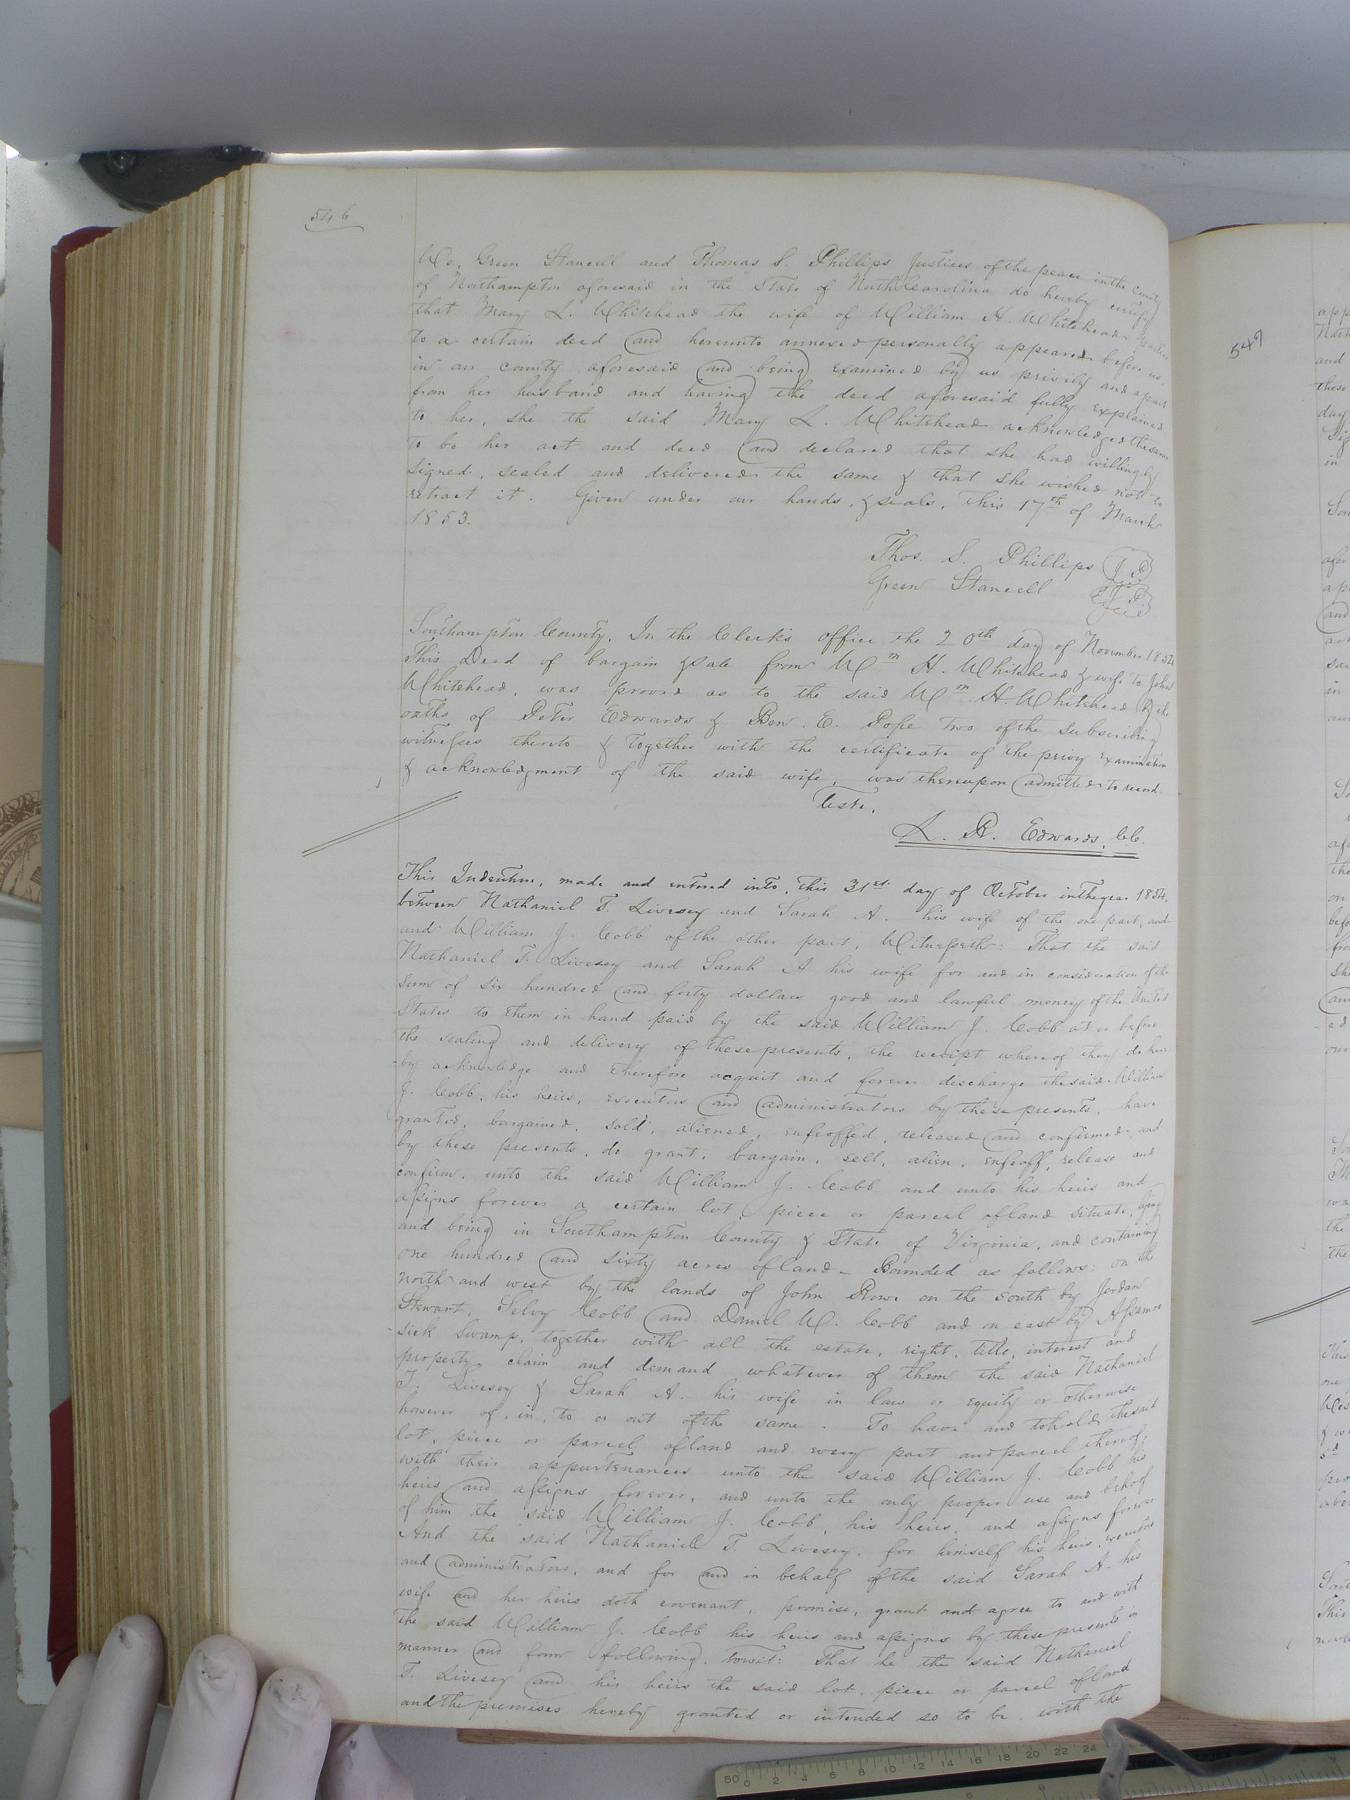 546
We, Green Stancell and Thomas S. Phillips Justices of the peace in the County
of Northampton aforesaid in the State of North Carolina do hereby certify
that Mary L. Whitehead the wife of William H. Whitehead parties
to a certain deed and hereunto annexed personally appeared before us
in our county aforesaid and being examined by us privily and apart
from her husband and having the deed aforesaid fully explained
to her, she the said Mary L. Whitehead acknowledged the same
to be her act and deed and declared that she had willingly
signed, sealed and delivered the same & that she wished not to
retract it. Given under our hands, & seals, this 17th of March
1853.
Thos. S. Phillips J.P.
Green Stancell J.P.
Southampton County, In the Clerk's office the 20th day of November 1854
This Deed of bargain & sale from Wm H. Whitehead & wife to John
Whitehead, was proved as to the said Wm H. Whitehead by the
oaths of Peter Edwards & Ben. E. Pope two of the subscribing
witnesses thereto & together with the certificate of the privy examination
& acknowledgment of the said wife, was thereupon admitted to record.
Teste,
L. R. Edwards, C.C.
This Indenture, made and entered into, this 31st day of October in the year 1854,
between Nathaniel T. Livesey and Sarah A. his wife of the one part, and
and William J. Cobb of the other part, Witnesseth: That the said
Nathaniel T. Livesey and Sarah A his wife for and in consideration of the
sum of six hundred and forty dollars good and lawful money of the United
States to them in hand paid by the said William J. Cobb at or before
the sealing and delivery of these presents, the receipt whereof they do here-
by acknowledge and therefore acquit and forever discharge the said William
J. Cobb, his heirs, executors and administrators by these presents, have
granted, bargained, sold, aliened, enfeoffed, released and confirmed, and
by these presents, do grant, bargain, sell, alien, enfeoff, release and
confirm, unto the said William J. Cobb and unto his heirs and
assigns forever a certain lot, piece or parcel of land situate, lying
and being in Southampton County & State of Virginia, and containing
one hundred and sixty acres of land - Bounded as follows: on the
north and west by the lands of John Rowe on the south by Jordan
Stewart, Selvy Cobb and Daniel W. Cobb and on east by Assamoo
sick Swamp, together with all the estate, right, title, interest and
property, claim and demand whatever of them the said Nathaniel
T. Livesey & Sarah A. his wife in law or equity or otherwise
however of, in, to or out of the same. To have and to hold, the said
lot, piece or parcel of land and every part and parcel thereof,
with their appurtenances unto the said William J. Cobb his
heirs and assigns forever, and unto the only proper use and behoof
of him the said William J. Cobb, his heirs, and assigns forever
And the said Nathaniel T. Livesey, for himself his heirs, executors
and administrators, and for and in behalf of the said Sarah A. his
wife and her heirs doth covenant, promise, grant and agree to and with
the said William J. Cobb his heirs and assigns by these presents in
manner and form following, towit: That he the said Nathaniel
T. Livesey and his heirs the said lot, piece or parcel of land
and the premises hereby granted or intended so to be, with the
547
50 0 2 4 6 8 10 12 14 16 18 20 22 24